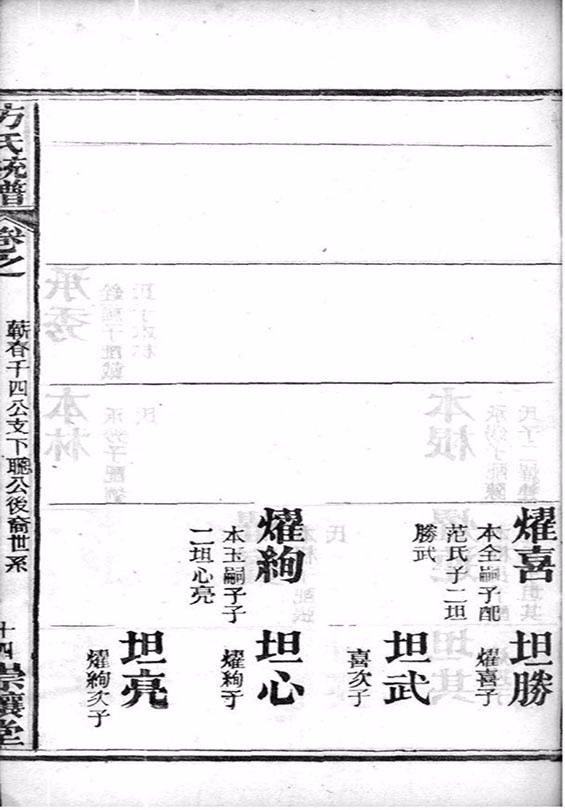 燿喜
本全嗣子配
范氏子二坦
勝武
燿絢
本玉嗣子子
二坦心亮
坦勝
燿喜子
坦武
喜次子
坦心
燿絢子
坦亮
燿絢次子
方氏統譜
卷之
蘄春千四公支下聰公後裔世系
十四
崇讓堂